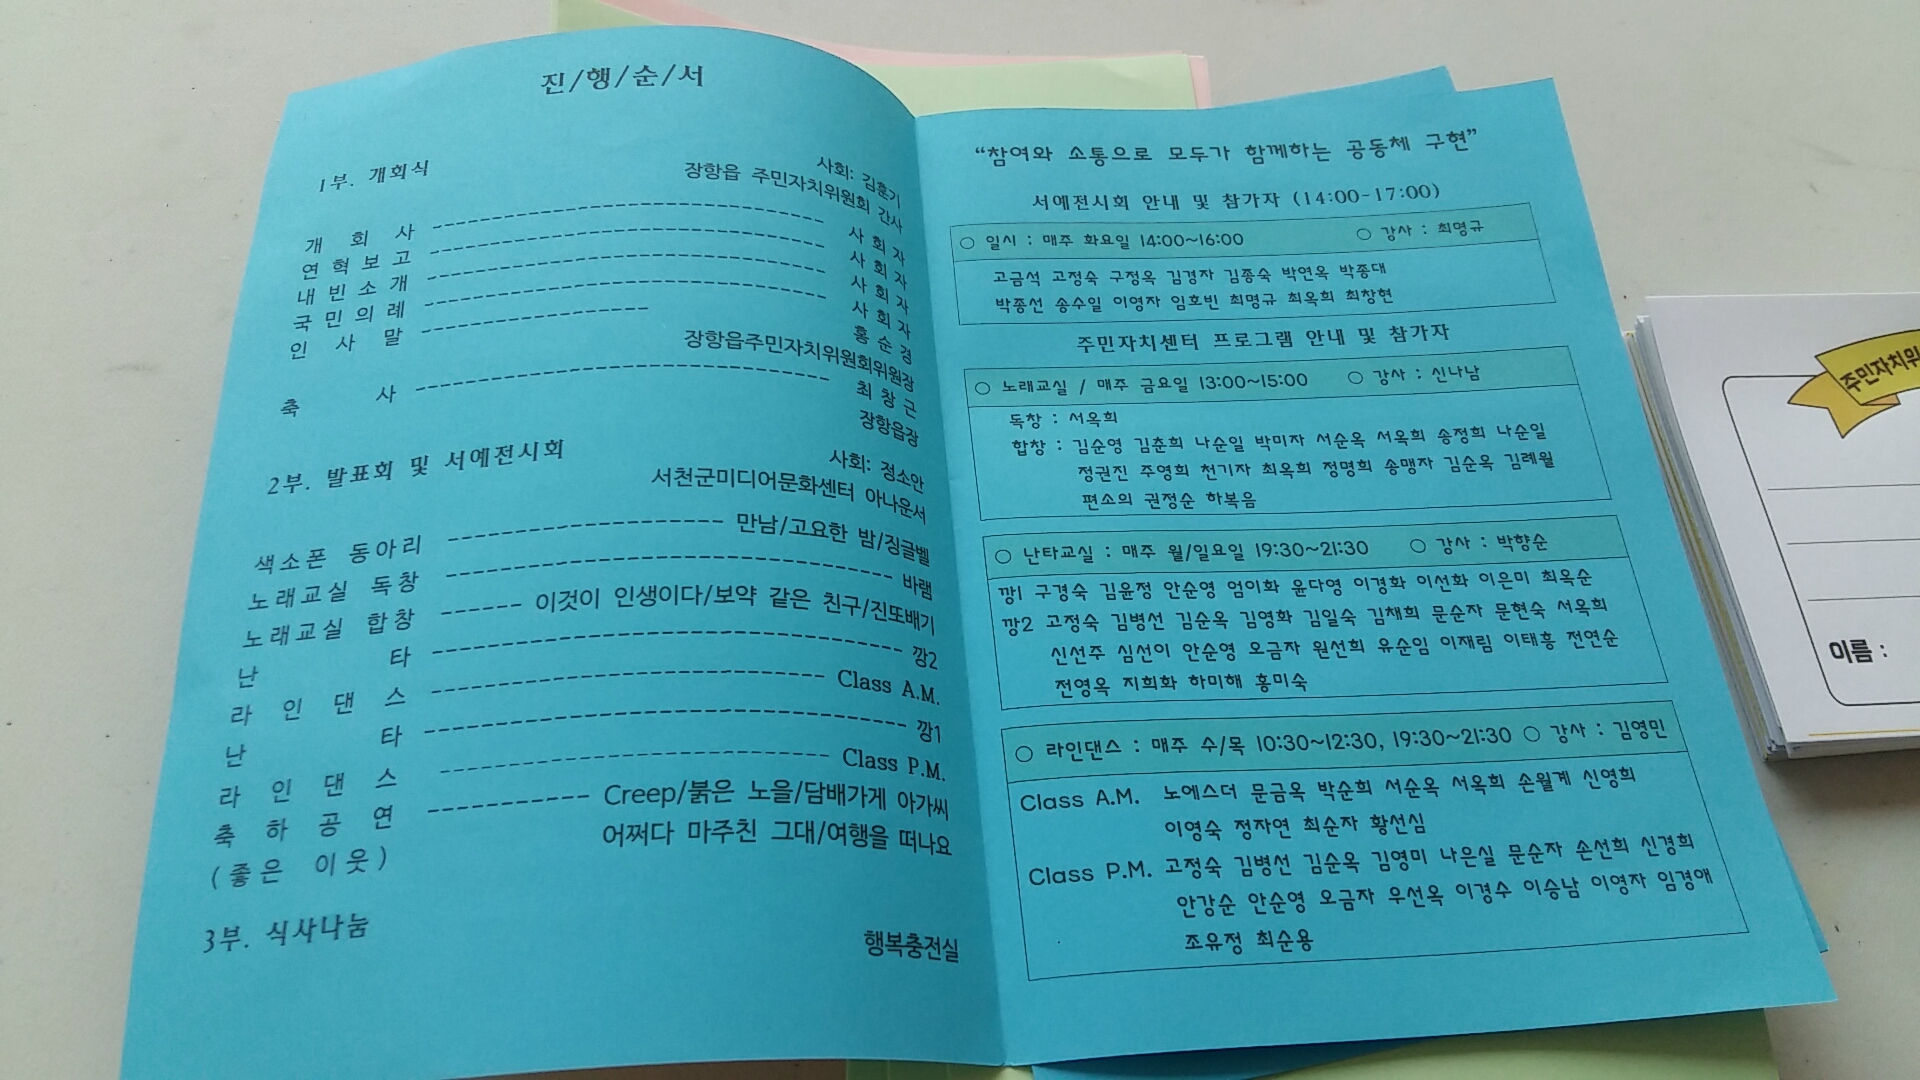 진/행/순/서
1부. 개회식
사회: 김훈기
장항읍 주민자치위원회 간사
개 회 사 ------------------------------ 사 회 자
연 혁 보 고 ------------------------------ 사 회 자
내 빈 소 개 ------------------------------ 사 회 자
국 민 의 례 ------------------------------ 사 회 자
인 사 말 ----------------- 홍 순 경
장항읍주민자치위원회위원장
축 사 ------------------------------ 최 창 근
장항읍장
2부. 발표회 및 서예전시회
사회: 정소안
서천군미디어문화센터 아나운서
색소폰 동아리 -------------------- 만남/고요한 밤/징글벨
노래교실 독창 -------------------------------- 바램
노래교실 합창 ------ 이것이 인생이다/보약 같은 친구/진또배기
난 타 ---------------------------------- 깡2
라 인 댄 스 ---------------------------- Class A.M.
난 타 ---------------------------------- 깡1
라 인 댄 스 ---------------------------- Class P.M.
축 하 공 연 ------------ Creep/붉은 노을/담배가게 아가씨
(좋은 이웃) 어쩌다 마주친 그대/여행을 떠나요
3부. 식사나눔
행복충전실
“참여와 소통으로 모두가 함께하는 공동체 구현”
서예전시회 안내 및 참가자 (14:00-17:00)
○ 일시 : 매주 화요일 14:00~16:00 ○ 강사 : 최명규
고금석 고정숙 구정옥 김경자 김종숙 박연옥 박종대
박종선 송수일 이영자 임호빈 최명규 최옥희 최창현
주민자치센터 프로그램 안내 및 참가자
○ 노래교실 / 매주 금요일 13:00~15:00 ○ 강사 : 신나남
독창 : 서옥희
합창 : 김순영 김춘희 나순일 박미자 서순옥 서옥희 송정희 나순일
정권진 주영희 천기자 최옥희 정명희 송맹자 김순옥 김례월
편소의 권정순 하복음
○ 난타교실 : 매주 월/일요일 19:30~21:30 ○ 강사 : 박향순
깡1 구경숙 김윤정 안순영 엄이화 윤다영 이경화 이선화 이은미 최옥순
깡2 고정숙 김병선 김순옥 김영화 김일숙 김채희 문순자 문현숙 서옥희
신선주 심선이 안순영 오금자 원선희 유순임 이재림 이태흥 전연순
전영옥 지희화 하미해 홍미숙
○ 라인댄스 : 매주 수/목 10:30~12:30, 19:30~21:30 ○ 강사 : 김영민
Class A.M. 노에스더 문금옥 박순희 서순옥 서옥희 손월계 신영희
이영숙 정자연 최순자 황선심
Class P.M. 고정숙 김병선 김순옥 김영미 나은실 문순자 손선희 신경희
안강순 안순영 오금자 우선옥 이경수 이승남 이영자 임경애
조유정 최순용
주민자치위
이름 :